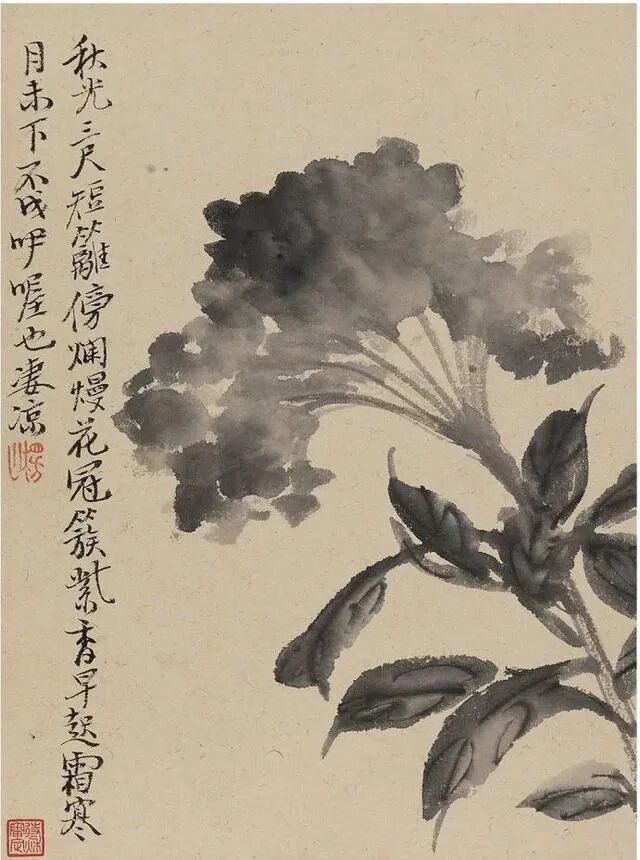 秋光三尺短籬傍爛熳花冠簇紫香早起霜寒
月未下不成吚喔也凄凉